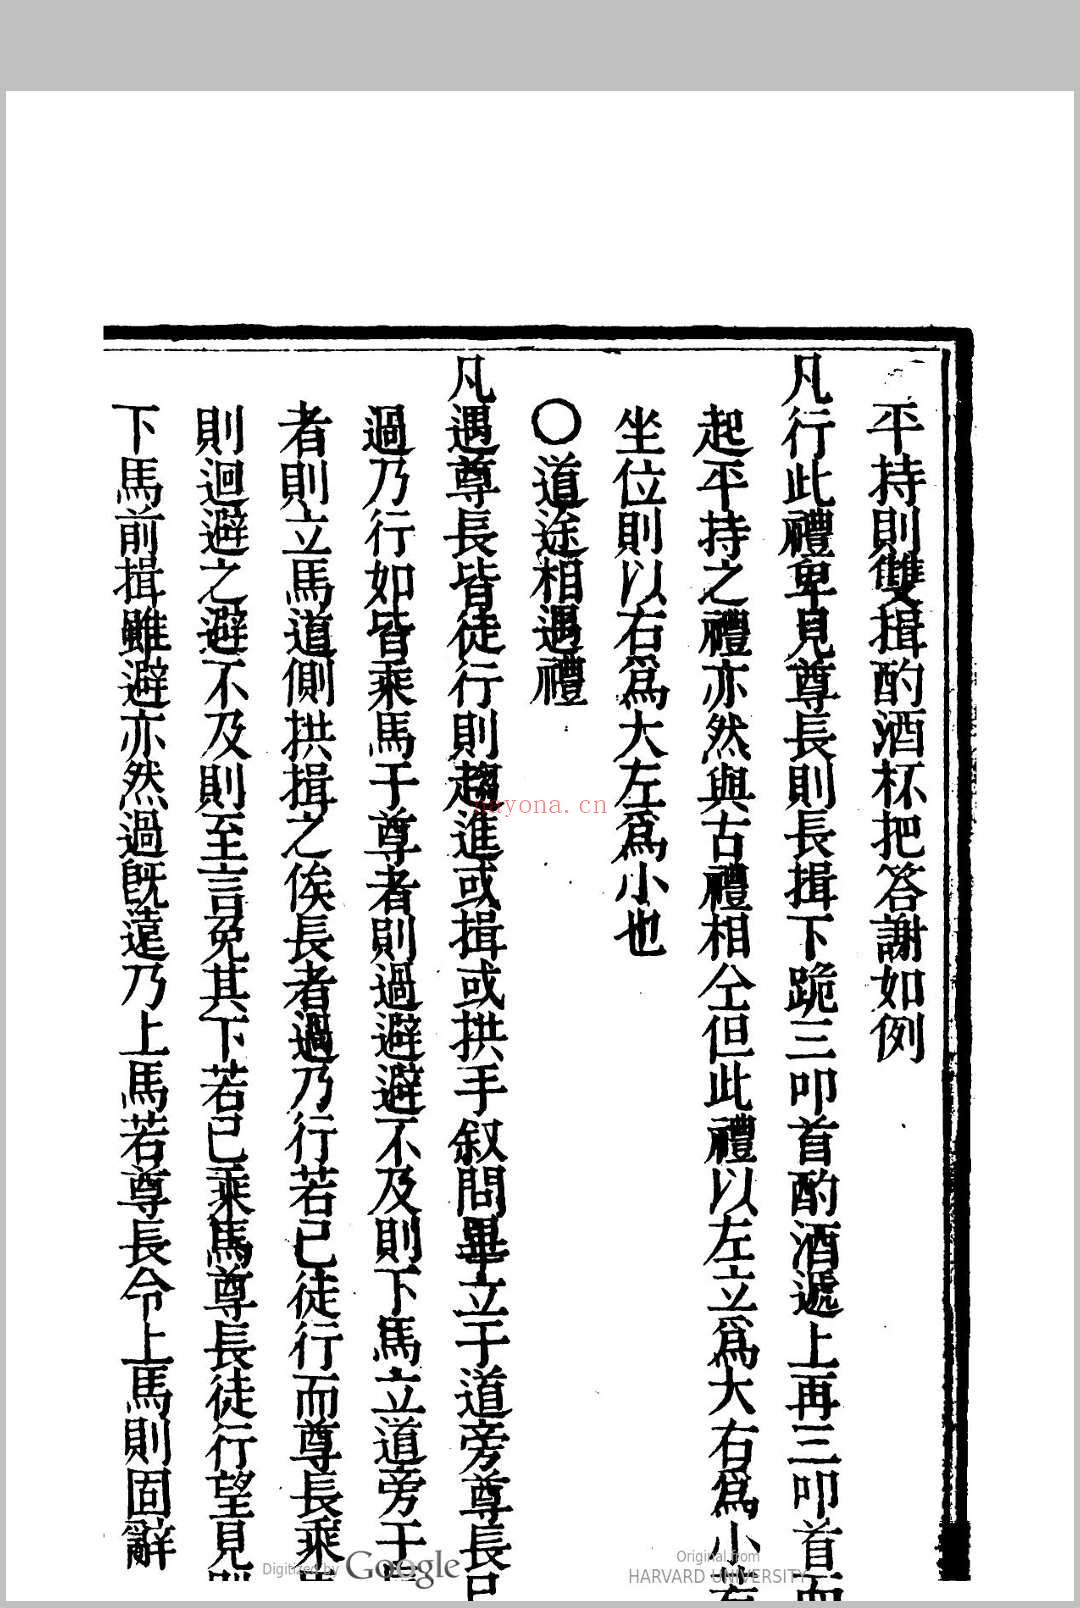 平持則雙揖酌酒杯把答謝如例
凡行此禮卑見尊長則長揖下跪三叩首酌酒遞上再三叩首而
起平持之禮亦然與古禮相仝但此禮以左立爲大右爲小若
坐位則以右爲大左爲小也
〇道途相遇禮
凡遇尊長皆徒行則趨進或揖或拱手叙問畢立于道旁尊長已
過乃行如皆乘馬于尊者則過避避不及則下馬立道旁于
者則立馬道側拱揖之俟長者過乃行若已徒行而尊長乘
則迴避之避不及則至言免其下若已乘馬尊長徒行望見則
下馬前揖雖避亦然過旣遠乃上馬若尊長令上馬則固辭
nayona.cn
Digitized by Google
Original from
HARVARD UNIVERSITY